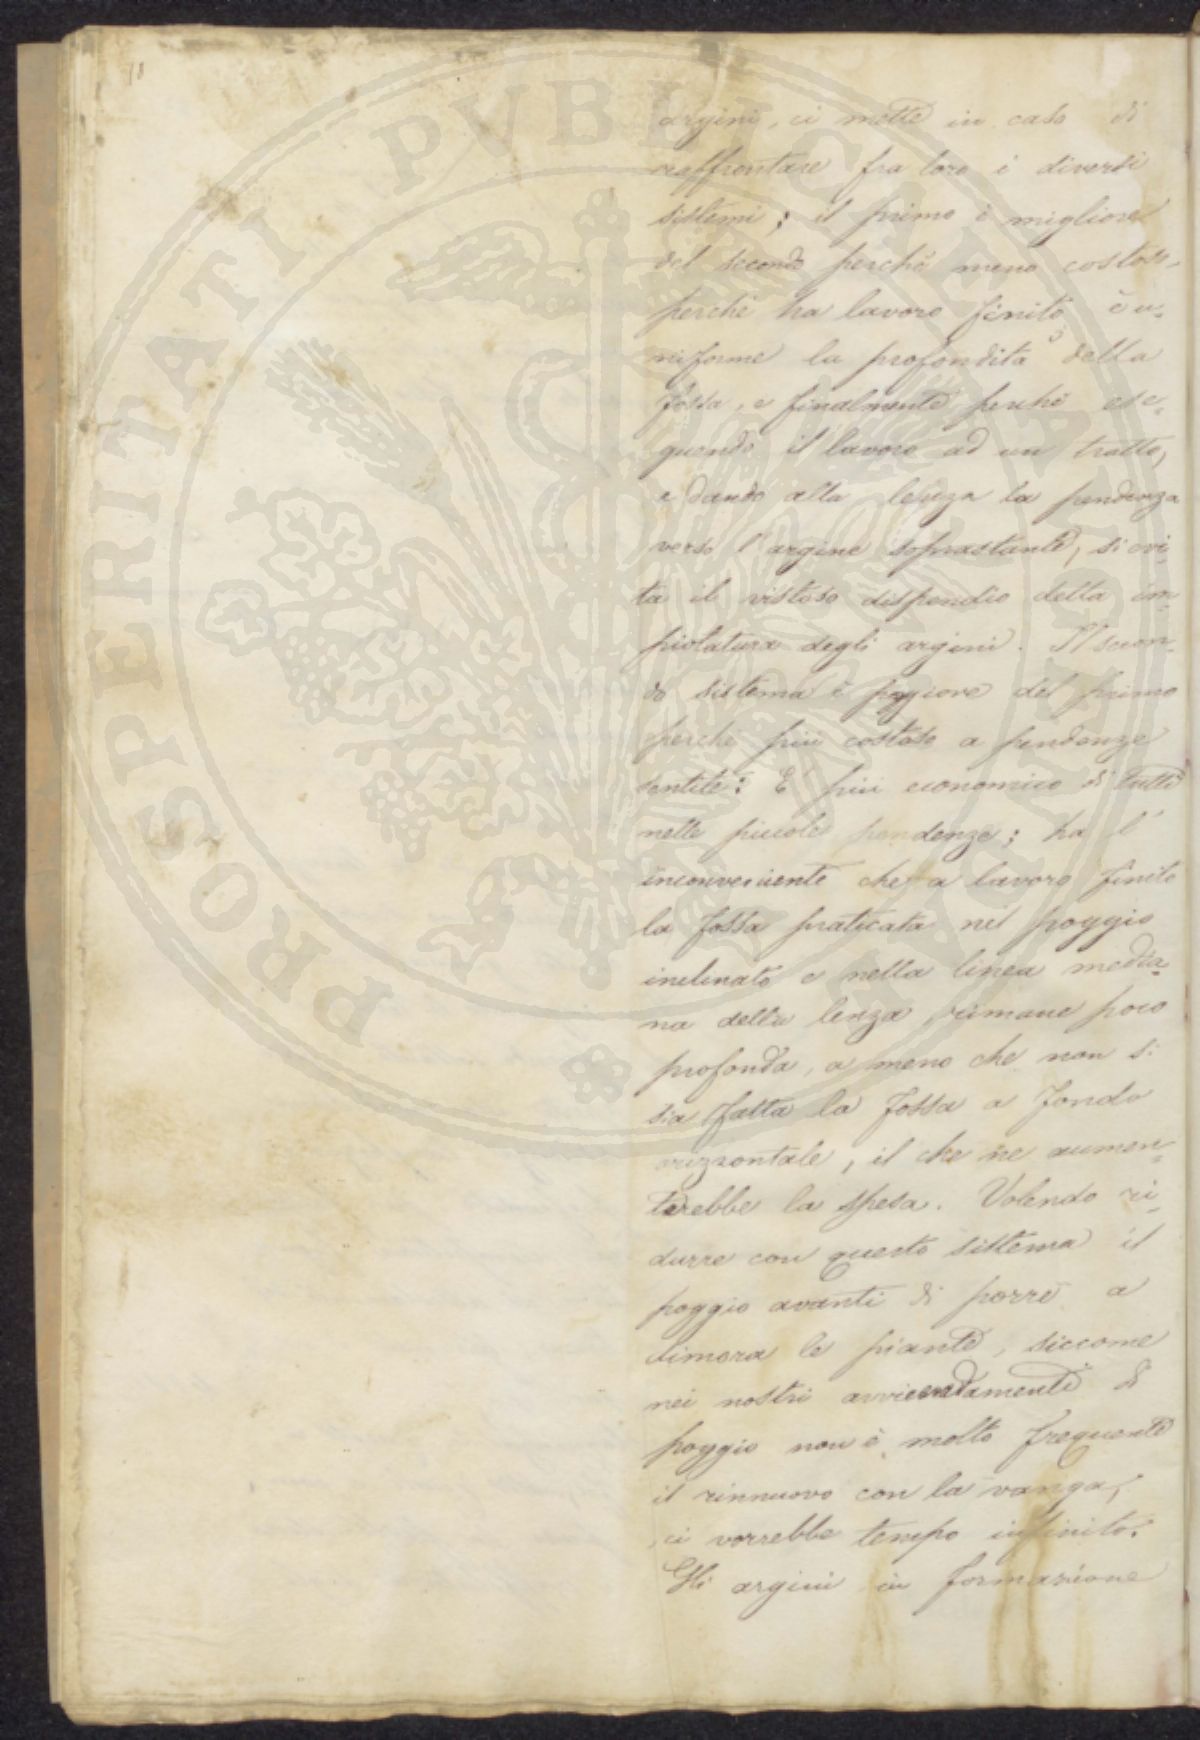 18
argini, ci mette in caso di
raffrontare fra loro i diversi
sistemi; il primo è migliore
del secondo perchè meno costoso,
perchè ha lavoro finito è u-
niforme la profondità della
fossa, e finalmente perchè ese-
guendo il lavoro ad un tratto,
e dando alla lenza la pendenza
verso l'argine soprastante, si evi-
ta il vistoso dispendio della im-
piolatura degli argini. Il secon-
do sistema è peggiore del primo
perchè più costoso a pendenze
sentite: È più economico di tutti
nelle piccole pendenze; ha l'
inconveniente che a lavoro finito
la fossa praticata nel poggio
inclinato e nella linea media-
na della lenza rimane poco
profonda, a meno che non si
sia fatta la fossa a fondo
orizzontale, il che ne aumen-
terebbe la spesa. Volendo ri-
durre con questo sistema il
poggio avanti di porre a
dimora le piante, siccome
nei nostri avvicendamenti di
poggio non è molto frequente
il rinnuovo con la vanga,
ci vorrebbe tempo infinito.
Gli argini in formazione
PROSPERITATI PVBLICAE AVGENDAE